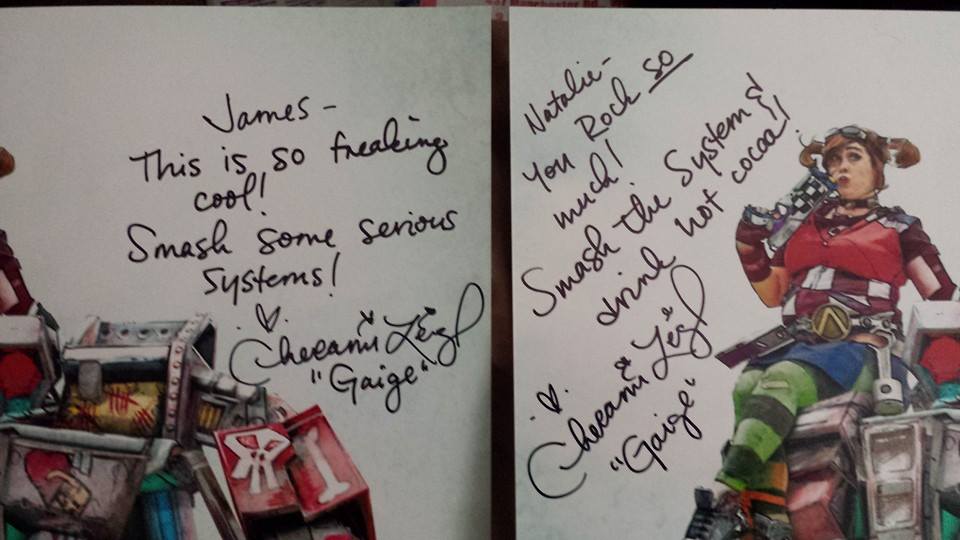 James -
This is so freaking
cool!
Smash some serious
systems!
Cherami Leigh
"Gaige"
Natalie-
You Rock so
much!
Smash the System &
drink hot cocoa!
Cherami Leigh
"Gaige"